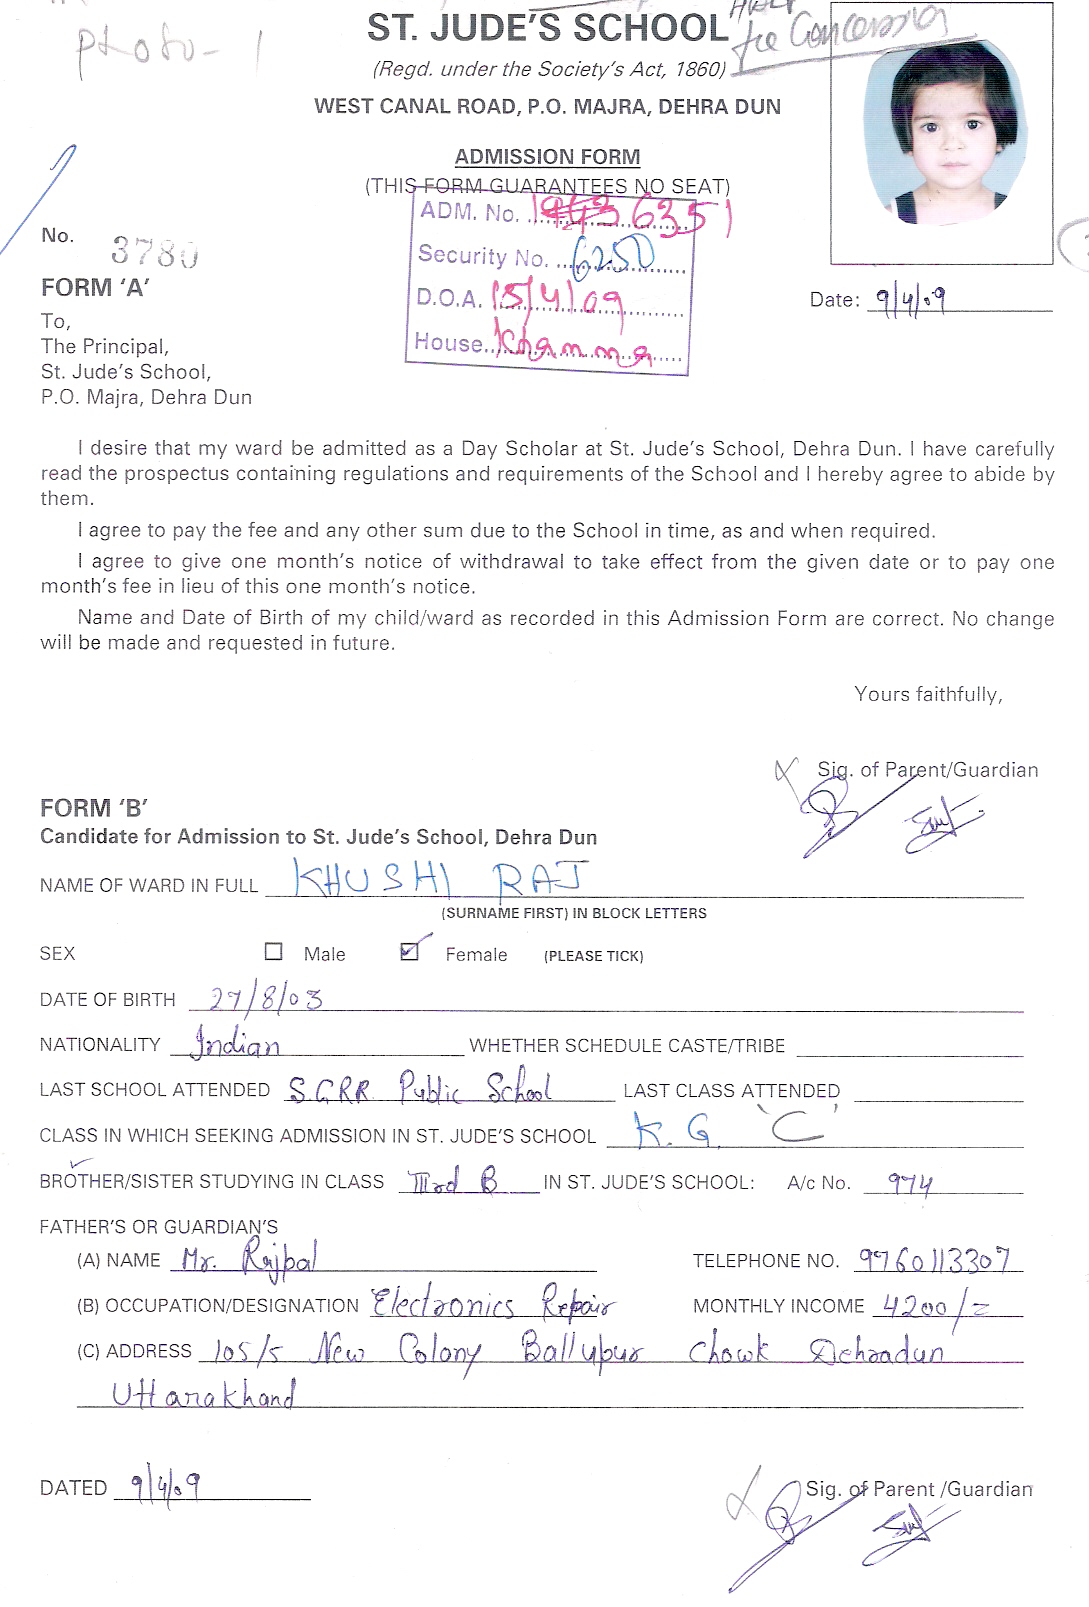 Photo - 1
ST. JUDE'S SCHOOL
Half
fee Concession
(Regd. under the Society's Act, 1860)
WEST CANAL ROAD, P.O. MAJRA, DEHRA DUN
ADMISSION FORM
(THIS FORM GUARANTEES NO SEAT)
ADM. No. 6351
No. 3780
Security No. 6250
FORM 'A'
D.O.A. 15/4/09
Date: 9/4/09
To,
House. Khamma
The Principal,
St. Jude's School,
P.O. Majra, Dehra Dun
I desire that my ward be admitted as a Day Scholar at St. Jude's School, Dehra Dun. I have carefully
read the prospectus containing regulations and requirements of the School and I hereby agree to abide by
them.
I agree to pay the fee and any other sum due to the School in time, as and when required.
I agree to give one month's notice of withdrawal to take effect from the given date or to pay one
month's fee in lieu of this one month's notice.
Name and Date of Birth of my child/ward as recorded in this Admission Form are correct. No change
will be made and requested in future.
Yours faithfully,
Sig. of Parent/Guardian
FORM 'B'
Candidate for Admission to St. Jude's School, Dehra Dun
NAME OF WARD IN FULL KHUSHI RAJ
(SURNAME FIRST) IN BLOCK LETTERS
SEX Male Female (PLEASE TICK)
DATE OF BIRTH 27/8/03
NATIONALITY Indian WHETHER SCHEDULE CASTE/TRIBE
LAST SCHOOL ATTENDED S.G.R.R. Public School LAST CLASS ATTENDED
CLASS IN WHICH SEEKING ADMISSION IN ST. JUDE'S SCHOOL K.G. 'C'
BROTHER/SISTER STUDYING IN CLASS IIIrd B IN ST. JUDE'S SCHOOL: A/c No. 974
FATHER'S OR GUARDIAN'S
(A) NAME Mr. Rajpal TELEPHONE NO. 9760113307
(B) OCCUPATION/DESIGNATION Electronics Repair MONTHLY INCOME 4200/=
(C) ADDRESS 105/5 New Colony Ballupur Chowk Dehradun
Uttarakhand
DATED 9/4/09
Sig. of Parent /Guardian